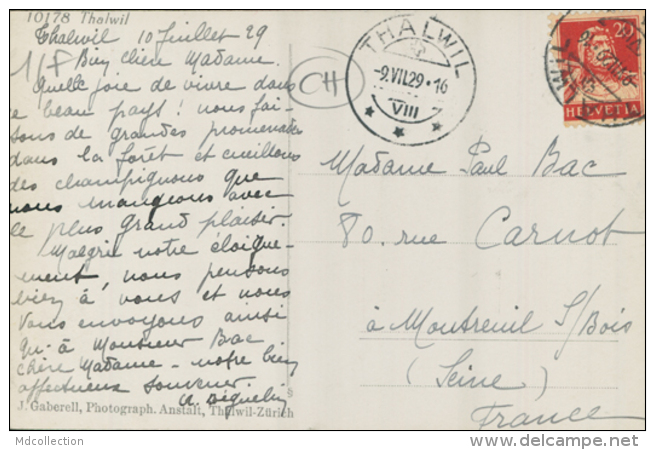 10178 Thalwil
Thalwil 10 Juillet 29
Bien chère Madame.
Quelle joie de vivre dans
ce beau pays! nous fai-
sons de grandes promenades
dans la forêt et cueillons
des champignons que
nous mangeons avec
le plus grand plaisir.
Malgré notre éloigne-
ment, nous pensons
bien à vous et nous
vous envoyons ainsi
qu'à Monsieur Bac
chère Madame - notre bien
affectueux souvenir.
J. Gaberell, Photograph. Anstalt, Thalwil-Zürich
CH
THALWIL
-9.VII.29.16
VIII
20
HELVETIA
Madame Paul Bac
80. rue Carnot
à Montreuil s/Bois
(Seine)
France
Mdcollection
www.delcampe.net